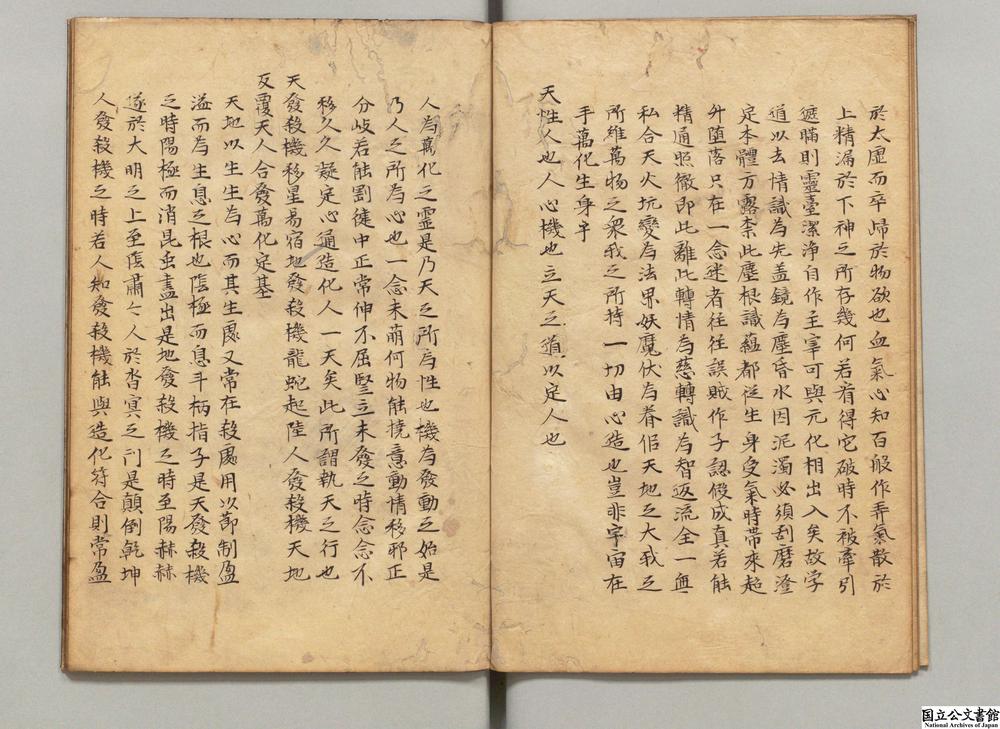 於太虛而卒歸於物欲也血氣心知百般作弄氣散於
上精漏於下神之所存幾何若看得它破時不被牽引
遮瞞則靈臺潔淨自作主宰可與元化相出入矣故学
道以去情識為先盖鏡為塵昏水因泥濁必須刮磨澄
定本體方露柰此塵根識蘊都從生身受氣時帶來超
升墮落只在一念迷者往往誤賊作子認假成真若能
精通照徹即此離此轉情為慈轉識為智返流全一無
私合天火坑變為法界妖魔伏為眷侶天地之大我之
所維萬物之衆我之所持一切由心造也豈非宇宙在
手萬化生身乎
天性人也人心機也立天之道以定人也
人為萬化之靈是乃天之所為性也機為發動之始是
乃人之所為心也一念未萌何物能撓意動情移邪正
分岐若能劉徤中正常伸不屈竪立未發之時念念不
移久久凝定心通造化人一天矣此所謂執天之行也
天發殺機移星易宿地發殺機龍蛇起陸人發殺機天地
反覆天人合發萬化定基
天地以生生為心而其生處又常在殺處用以節制盈
溢而為生息之根也陰極而息斗柄指子是天發殺機
之時陽極而消昆虫盡出是地發殺機之時至陽赫赫
遂於大明之上至陰肅々人於杳冥之门是顛倒乾坤
人發殺機之時若人知發殺機能與造化符合則常盈
国立公文書館
National Archives of Japan